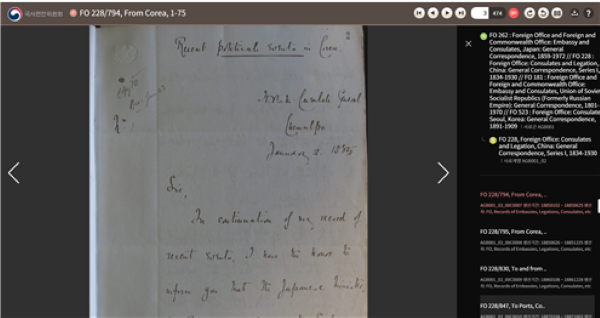 국사편찬위원회
FO 228/794, From Corea, 1-75
3
474
Recent political events in Corea.
H.B.M. Consulate General
Chemulpo
January 2. 1895
Sir,
In continuation of my record of
recent events, I have the honor to
inform you that the Japanese Minister,
FO 262 : Foreign Office and Foreign and
Commonwealth Office: Embassy and
Consulates, Japan: General
Correspondence, 1859-1972 // FO 228 :
Foreign Office: Consulates and Legation,
China: General Correspondence, Series I,
1834-1930 // FO 181 : Foreign Office and
Foreign and Commonwealth Office:
Embassy and Consulates, Union of Soviet
Socialist Republics (Formerly Russian
Empire): General Correspondence, 1801-
1970 // FO 523 : Foreign Office: Consulate,
Seoul, Korea: General Correspondence,
1891-1909
AG0001
FO 228, Foreign Office: Consulates
and Legation, China: General
Correspondence, Series I, 1834-1930
AG0001_02
FO 228/794, From Corea, ..
FO, Records of Embassies, Legations, Consulates, etc
FO 228/795, From Corea, ..
FO, Records of Embassies, Legations, Consulates, etc
FO 228/830, To and from ..
FO, Records of Embassies, Legations, Consulates, etc
FO 228/847, To Ports, Co..